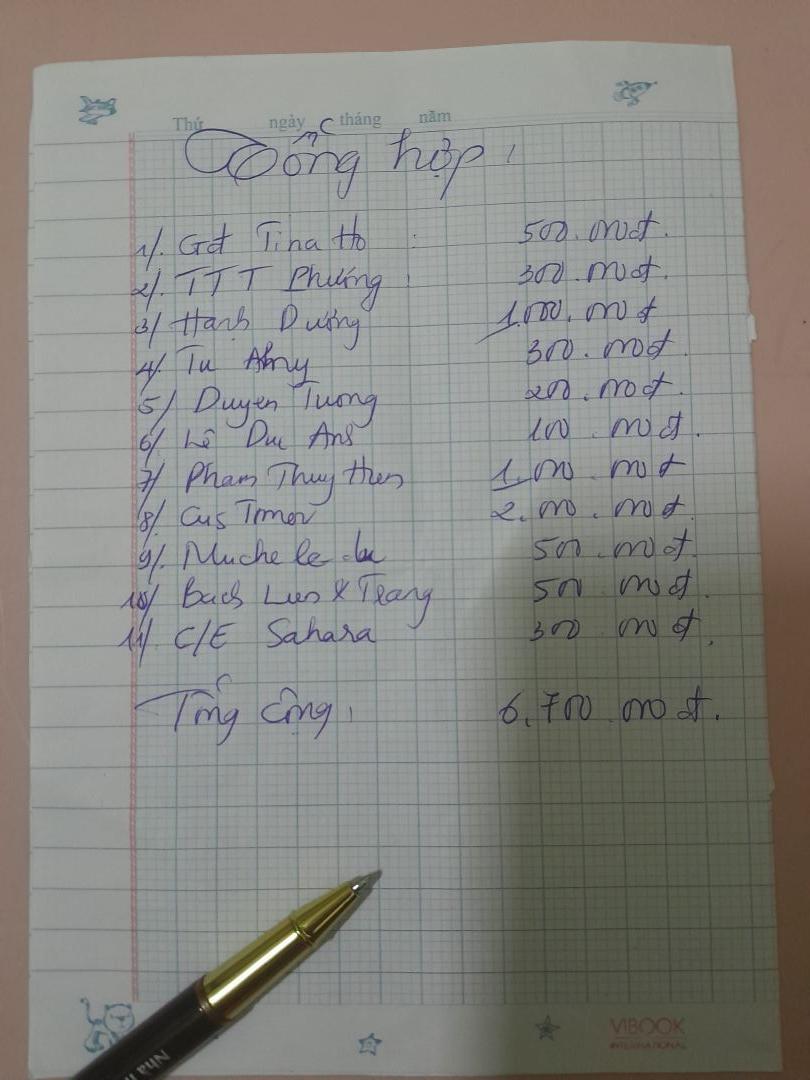 Thứ ngày tháng năm
Tổng hợp:
1/. Gđ Tina Ho : 500.000đ.
2/. TTT Phương : 300.000đ.
3/ Hạnh Dương 1.000.000đ
4/. Tu Amy 300.000đ.
5/ Duyen Tuong 200.000đ.
6/ Lê Duc Anh 100.000đ.
7/ Pham Thuy Hien 1.000.000đ
8/. Cus Tmor 2.000.000đ.
9/. Muchele 500.000đ.
10/ Bach Lien & Trang 500.000đ.
11/. C/E Sahara 300.000đ.
Tổng cộng: 6.700.000đ.
VIBOOK
INTERNATIONAL